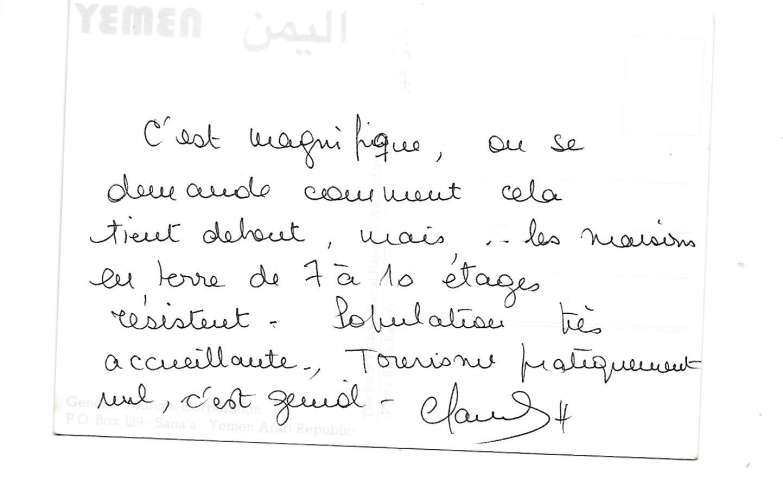 YEMEN اليمن
C'est magnifique, on se
demande comment cela
tient debout, mais, .. les maisons
en terre de 7 à 10 étages
résistent - Population très
accueillante., Tourisme pratiquement
nul, c'est génial -
P.O. Box 129 - Sana'a Yemen Arab Republic